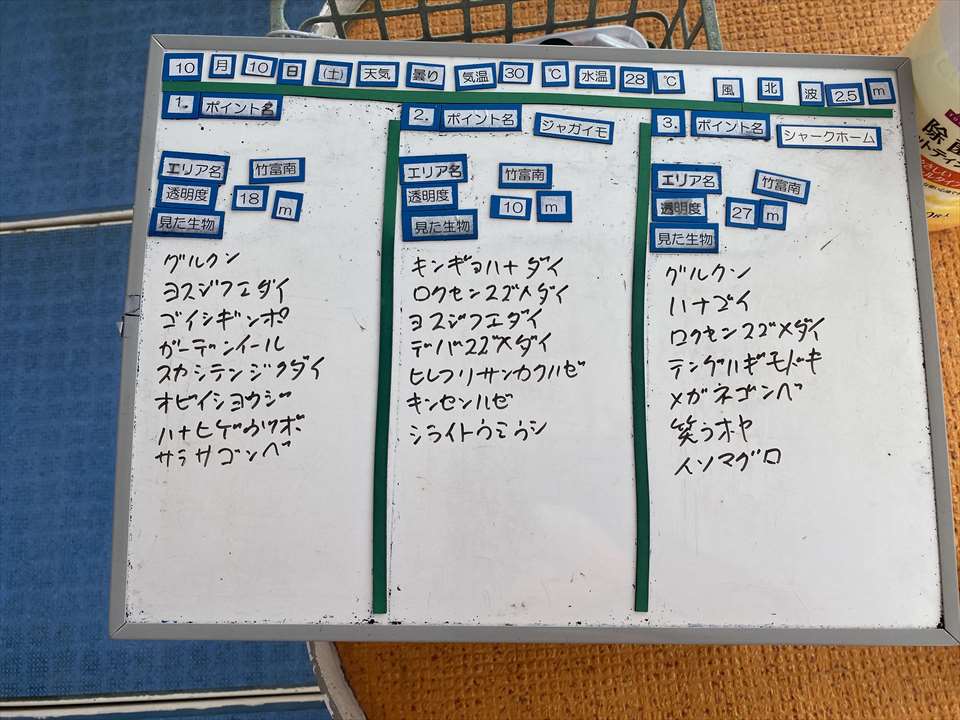 10 月 10 日 (土) 天気 曇り 気温 30 ℃ 水温 28 ℃ 風 北 波 2.5 m
1. ポイント名
エリア名 竹富南
透明度 18 m
見た生物
グルクン
ヨスジフエダイ
ゴイシギンポ
ガーデンイール
スカシテンジクダイ
オビイシヨウジ
ハナヒゲウツボ
サラサゴンベ
2. ポイント名 ジャガイモ
エリア名 竹富南
透明度 10 m
見た生物
キンギョハナダイ
ロクセンスズメダイ
ヨスジフエダイ
デバスズメダイ
ヒレフリサンカクハゼ
キンセンハゼ
シライトウミウシ
3. ポイント名 シャークホーム
エリア名 竹富南
透明度 27 m
見た生物
グルクン
ハナゴイ
ロクセンスズメダイ
テングハギモドキ
メガネゴンベ
笑うホヤ
イソマグロ
除菌